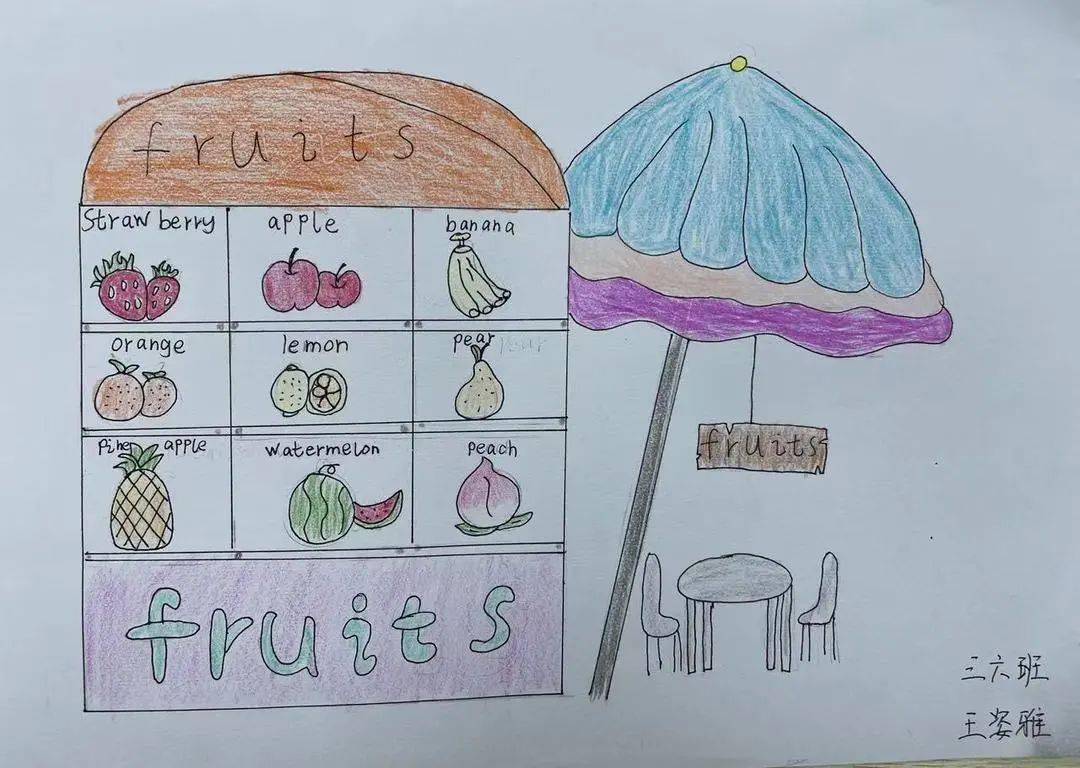 fruits
Strawberry
apple
banana
orange
lemon
pear pear
Pine apple
watermelon
peach
fruits
fruits
三六班
王姿雅